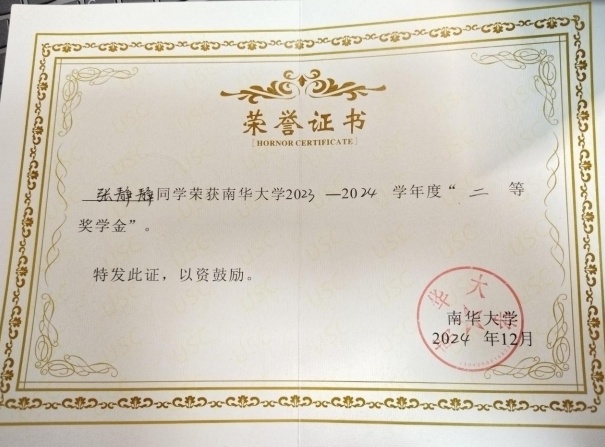 荣誉证书
[ HORNOR CERTIFICATE ]
张静静同学荣获南华大学2023—2024 学年度“ 二 等
奖学金”。
特发此证，以资鼓励。
南华大学
2024 年12月